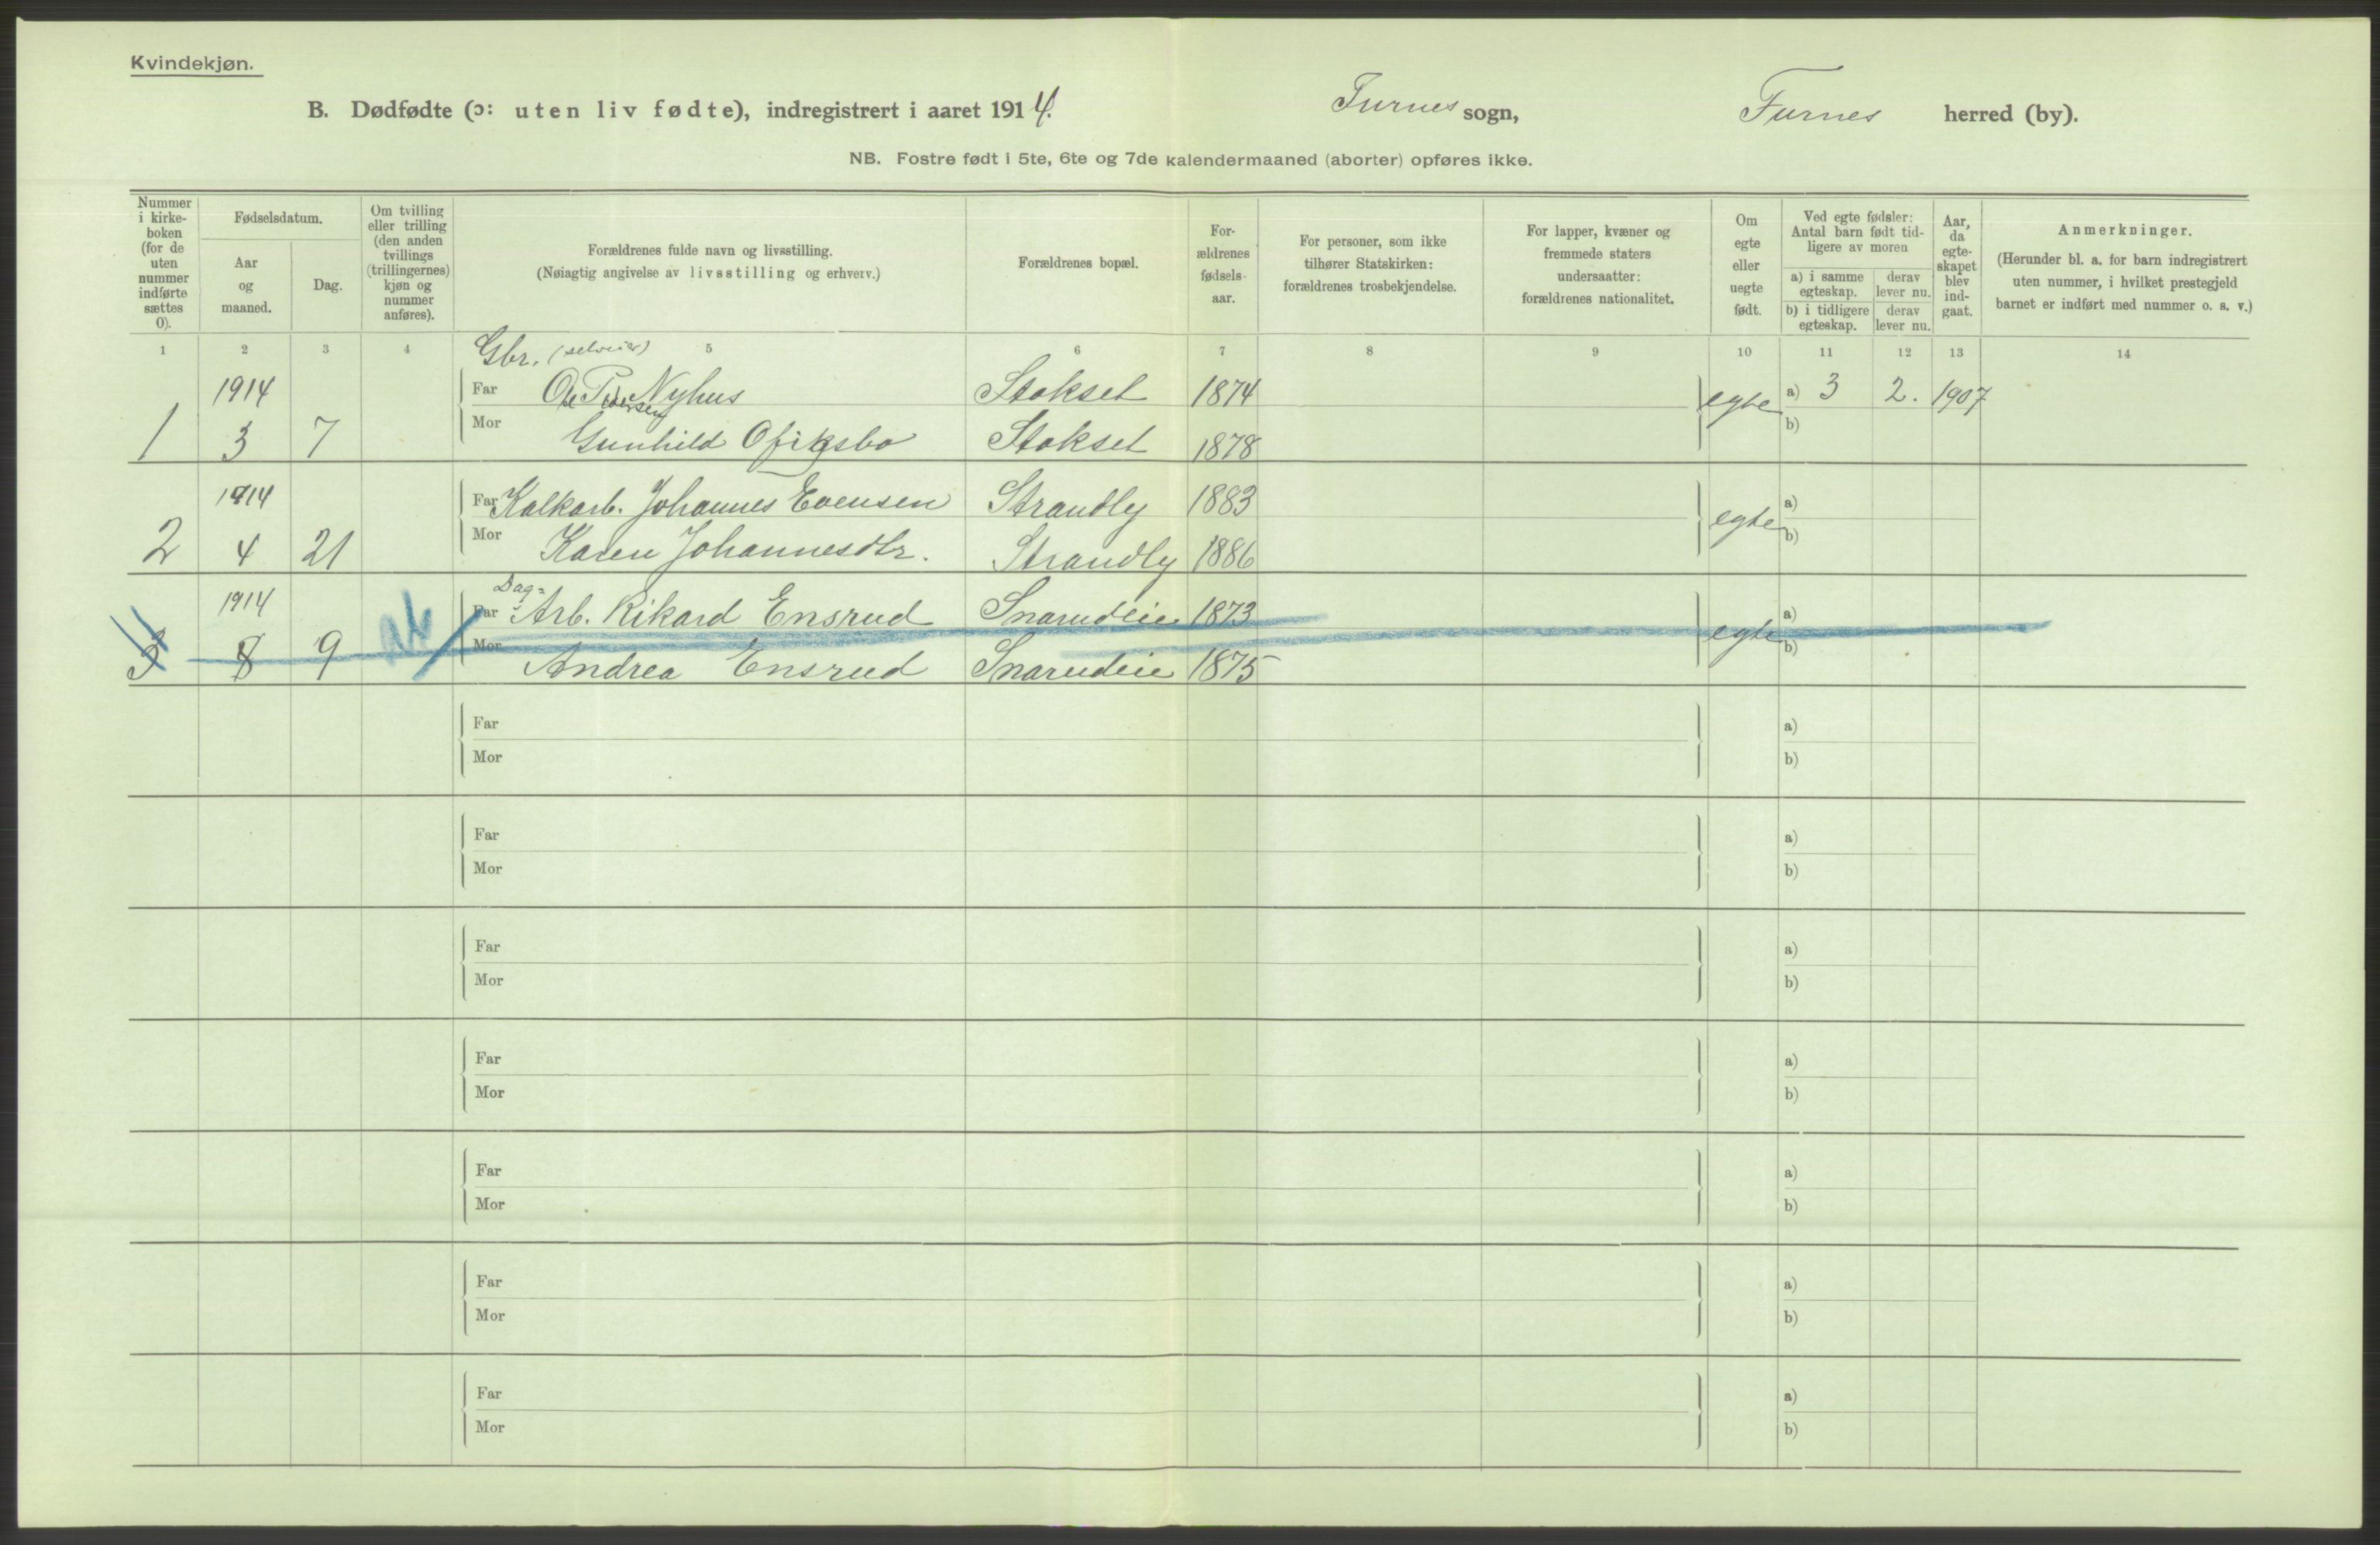 Kvindekjøn.
B. Dødfødte (ɔ: uten liv fødte), indregistrert i aaret 1914. Furnes sogn, Furnes herred (by).
NB. Fostre født i 5te, 6te og 7de kalendermaaned (aborter) opføres ikke.
Nummer i kirkeboken (for de uten nummer indførte sættes 0).
Fødselsdatum.
Aar og maaned.
Dag.
Om tvilling eller trilling (den anden tvillings (trillingernes) kjøn og nummer anføres).
Forældrenes fulde navn og livsstilling.
(Nøiagtig angivelse av livsstilling og erhverv.)
Forældrenes bopæl.
Forældrenes fødselsaar.
For personer, som ikke tilhører Statskirken: forældrenes trosbekjendelse.
For lapper, kvæner og fremmede staters undersaatter: forældrenes nationalitet.
Om egte eller uegte født.
Ved egte fødsler: Antal barn født tidligere av moren
a) i samme egteskap. derav lever nu.
b) i tidligere egteskap. derav lever nu.
Aar, da egteskapet blev indgaat.
Anmerkninger.
(Herunder bl. a. for barn indregistrert uten nummer, i hvilket prestegjeld barnet er indført med nummer o. s. v.)
1 2 3 4 5 6 7 8 9 10 11 12 13 14
Gbr. (selveier)
1914 Far Ole Pedersen Nyhus Stokset 1874 egte a) 3 2. 1907
1 3 7 Mor Gunhild Stokset 1878 b)
1914 Far Kalkarb. Johannes Evensen Strandly 1883 egte a)
2 4 21 Mor Karen Johannesdtr. Strandly 1886 b)
Dag-
1914 Far Arb. Rikard Ensrud Snarudeie 1873 egte a)
3 8 9 Mor Andrea Ensrud Snarudeie 1875 b)
Far a)
Mor b)
Far a)
Mor b)
Far a)
Mor b)
Far a)
Mor b)
Far a)
Mor b)
Far a)
Mor b)
Far a)
Mor b)